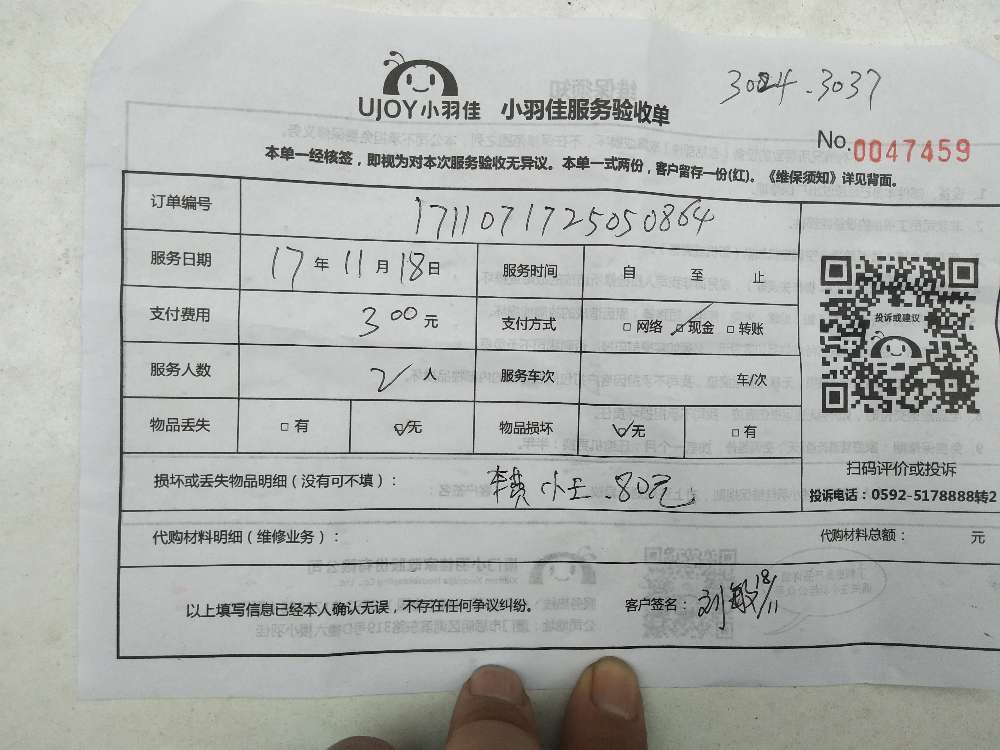 3024-3037
UJOY小羽佳 小羽佳服务验收单
No.0047459
本单一经核签，即视为对本次服务验收无异议。本单一式两份，客户留存一份(红)。《维保须知》详见背面。
订单编号 1711071725050864
服务日期 17年11月18日 服务时间 自 至 止
支付费用 300元 支付方式 □网络 ☑现金 □转账
投诉或建议
服务人数 2人 服务车次 车/次
物品丢失 □有 ☑无 物品损坏 ☑无 □有
扫码评价或投诉
损坏或丢失物品明细（没有可不填）： 车费 小王 80元
投诉电话：0592-5178888转2
代购材料明细（维修业务）： 代购材料总额： 元
以上填写信息已经本人确认无误，不存在任何争议纠纷。 客户签名： 刘敏 18/11